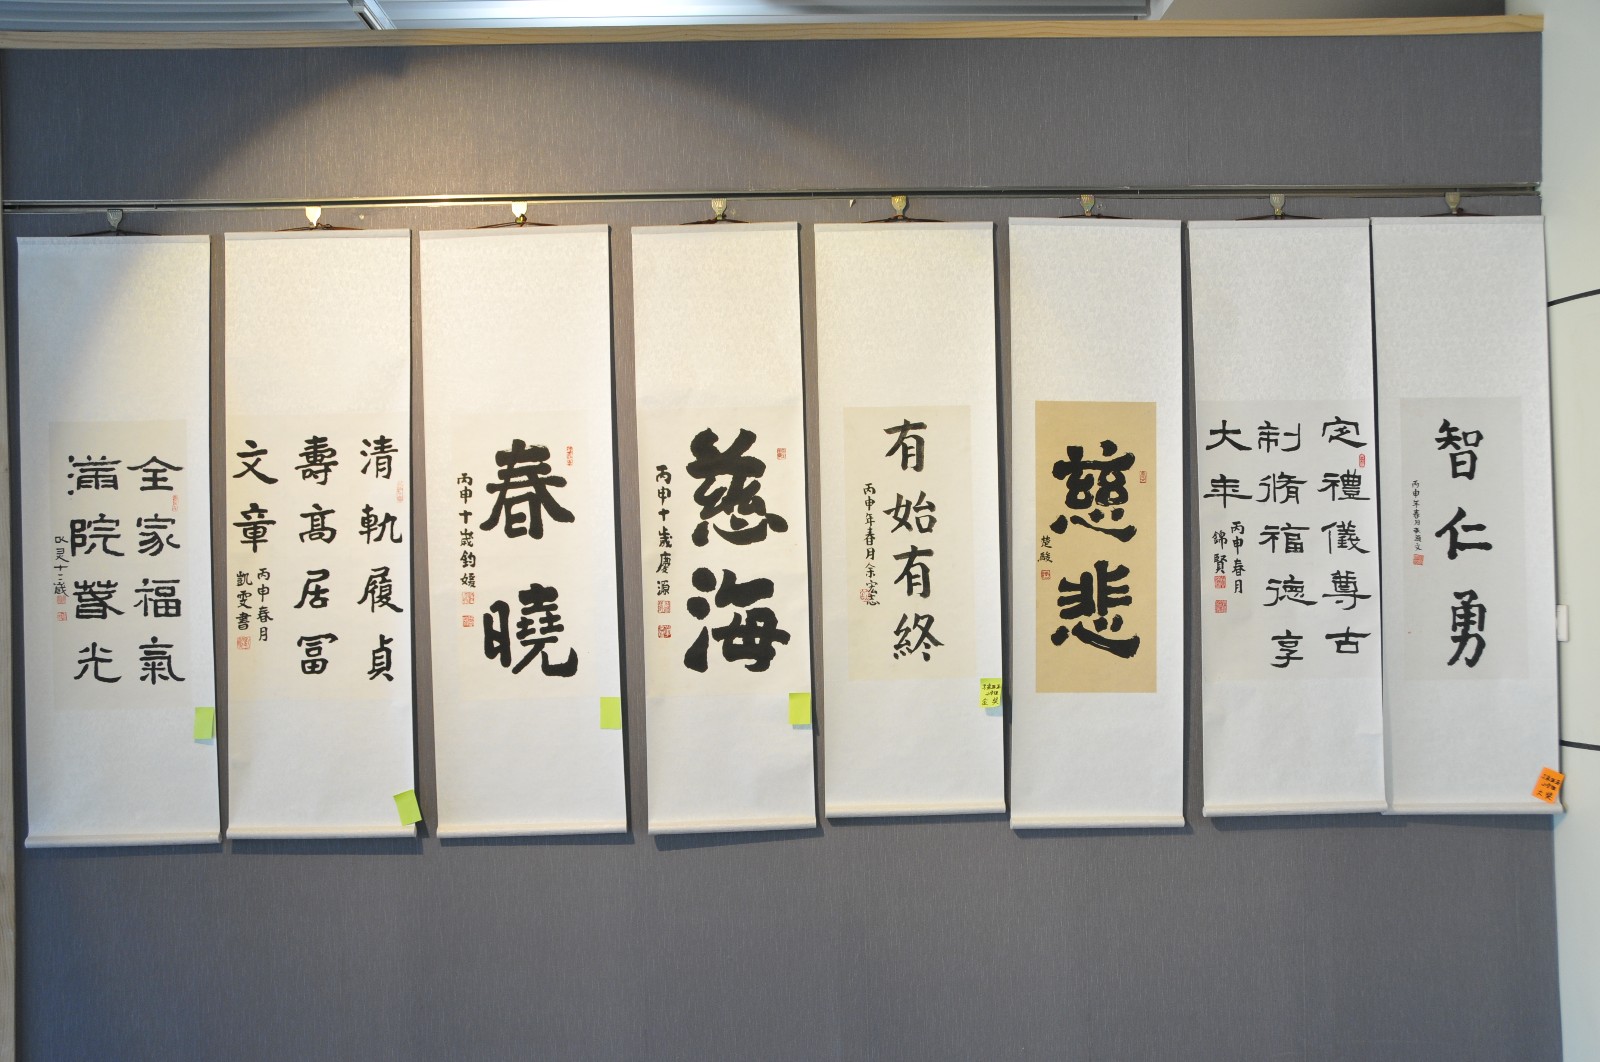 智仁勇
丙申年春月
定禮儀尊古
制脩福德享
大年
丙申春月
錦賢
慈悲
楚駿
有始有終
丙申年春月余宏志
慈海
丙申十歲慶源
春曉
丙申十歲鈞媛
清軌履貞
壽高居冨
文章
丙申春月
凱雯書
全家福氣
滿院春光
十二歲